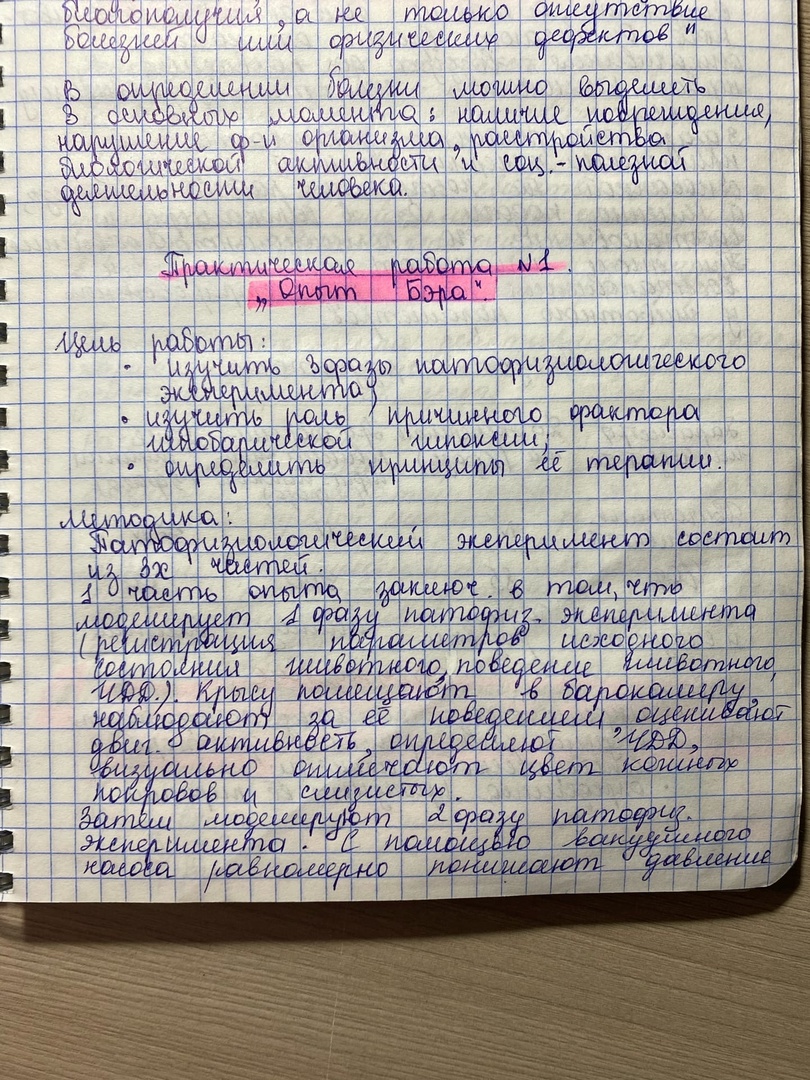 благополучия, а не только отсутствие
болезней или физических дефектов"
В определении болезни можно выделить
3 основных момента: наличие повреждения,
нарушение ф-и организма, расстройства
биологической активности и соц.-полезной
деятельности человека.
Практическая работа №1.
„Опыт Бэра".
Цель работы:
• изучить 3 фазы патофизиологического
эксперимента;
• изучить роль причинного фактора
гипобарической гипоксии;
• определить принципы её терапии.
Методика:
Патофизиологический эксперимент состоит
из 3х частей.
1 часть опыта заключ. в том, что
моделирует 1 фазу патофиз. эксперимента
(регистрация параметров исходного
состояния животного, поведение животного,
ЧДД). Крысу помещают в барокамеру,
наблюдают за её поведением, оценивают
двиг. активность, определяют ЧДД,
визуально отмечают цвет кожных
покровов и слизистых.
Затем моделируют 2 фазу патофиз.
эксперимента. С помощью вакуумного
насоса равномерно понижают давление